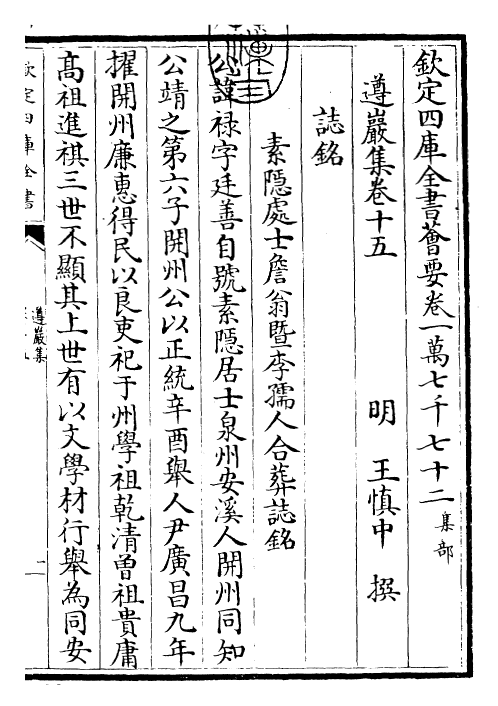 欽定四庫全書薈要卷一萬七千七十二 集部
遵巖集卷十五 明 王慎中 撰
誌銘
素隱處士詹翁暨李孺人合葬誌銘
公諱祿字廷善自號素隱居士泉州安溪人開州同知
公靖之第六子開州公以正統辛酉舉人尹廣昌九年
擢開州廉惠得民以良吏祀于州學祖乾清曾祖貴庸
高祖進祺三世不顯其上世有以文學材行舉為同安
欽定四庫全書
遵巖集
一